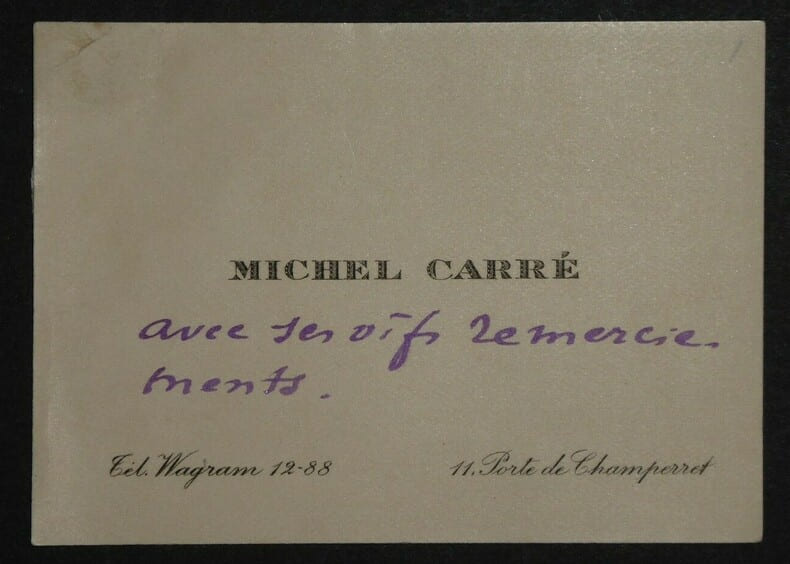 MICHEL CARRÉ
avec ses vifs remercie-
ments.
Tél. Wagram 12-88
11, Porte de Champerret